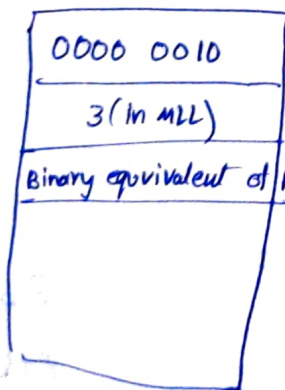 0000 0010
3 (in MLL)
Binary equvivalent of